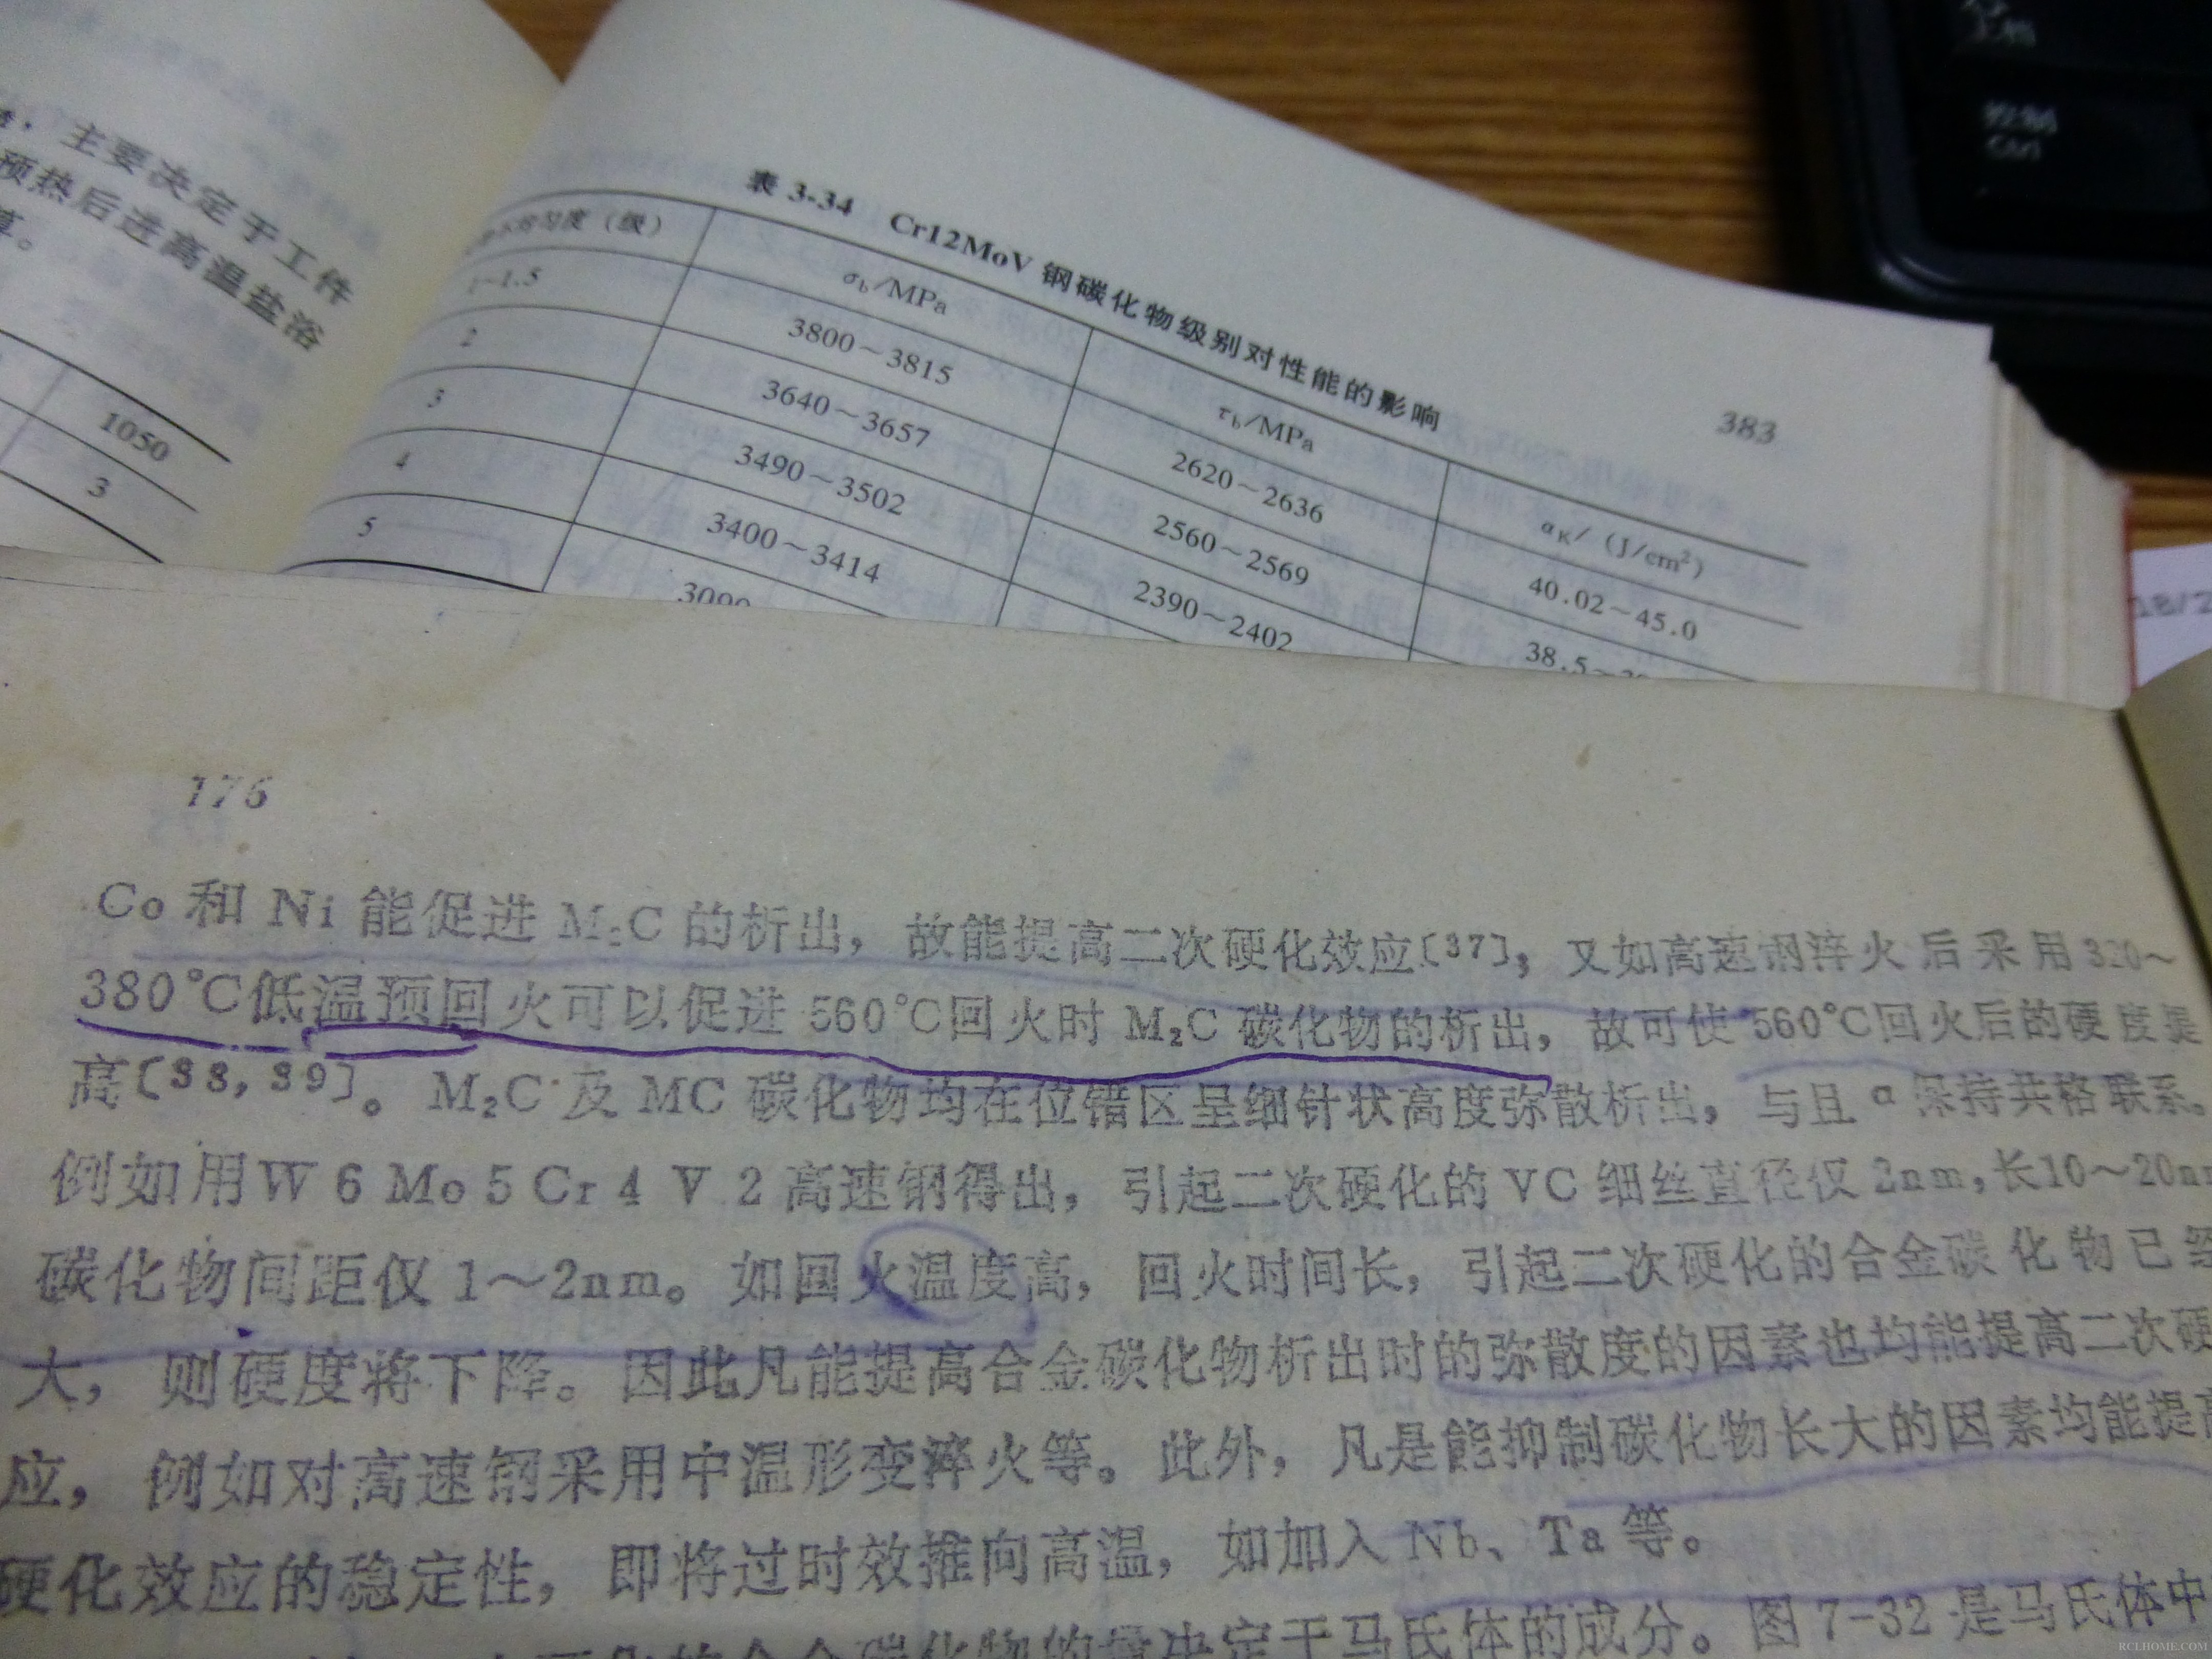 主要决定于工件
预热后进高温盐浴
1050
3
383
表 3-34 Cr12MoV 钢碳化物级别对性能的影响
匀度（级） σb/MPa τb/MPa αK/（J/cm²）
1~1.5 3800～3815 2620～2636 40.02～45.0
2 3640～3657 2560～2569 38.5～
3 3490～3502 2390～2402
4 3400～3414
5 3090
控制
Ctrl
176
Co 和 Ni 能促进 M₂C 的析出，故能提高二次硬化效应〔37〕；又如高速钢淬火后采用 320～
380℃低温预回火可以促进 560℃回火时 M₂C 碳化物的析出，故可使 560℃回火后的硬度提
高〔38，39〕。M₂C 及 MC 碳化物均在位错区呈细针状高度弥散析出，与且 α 保持共格联系。
例如用 W 6 Mo 5 Cr 4 V 2 高速钢得出，引起二次硬化的 VC 细丝直径仅 2nm，长10～20n
碳化物间距仅 1～2nm。如回火温度高，回火时间长，引起二次硬化的合金碳化物已
大，则硬度将下降。因此凡能提高合金碳化物析出时的弥散度的因素也均能提高二次硬
应，例如对高速钢采用中温形变淬火等。此外，凡是能抑制碳化物长大的因素均能提
硬化效应的稳定性，即将过时效推向高温，如加入 Nb、Ta 等。
合金碳化物的量决定于马氏体的成分。图 7-32 是马氏体中
RCLHOME.COM